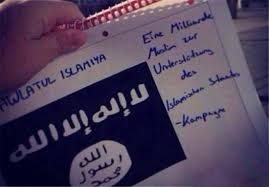 AWLATUL ISLAMIYA
لا إله إلا الله
الله
رسول
محمد
Eine Milliarde
Muslim zur
Unterstützung
des
Islamischen Staates
-Kampagne